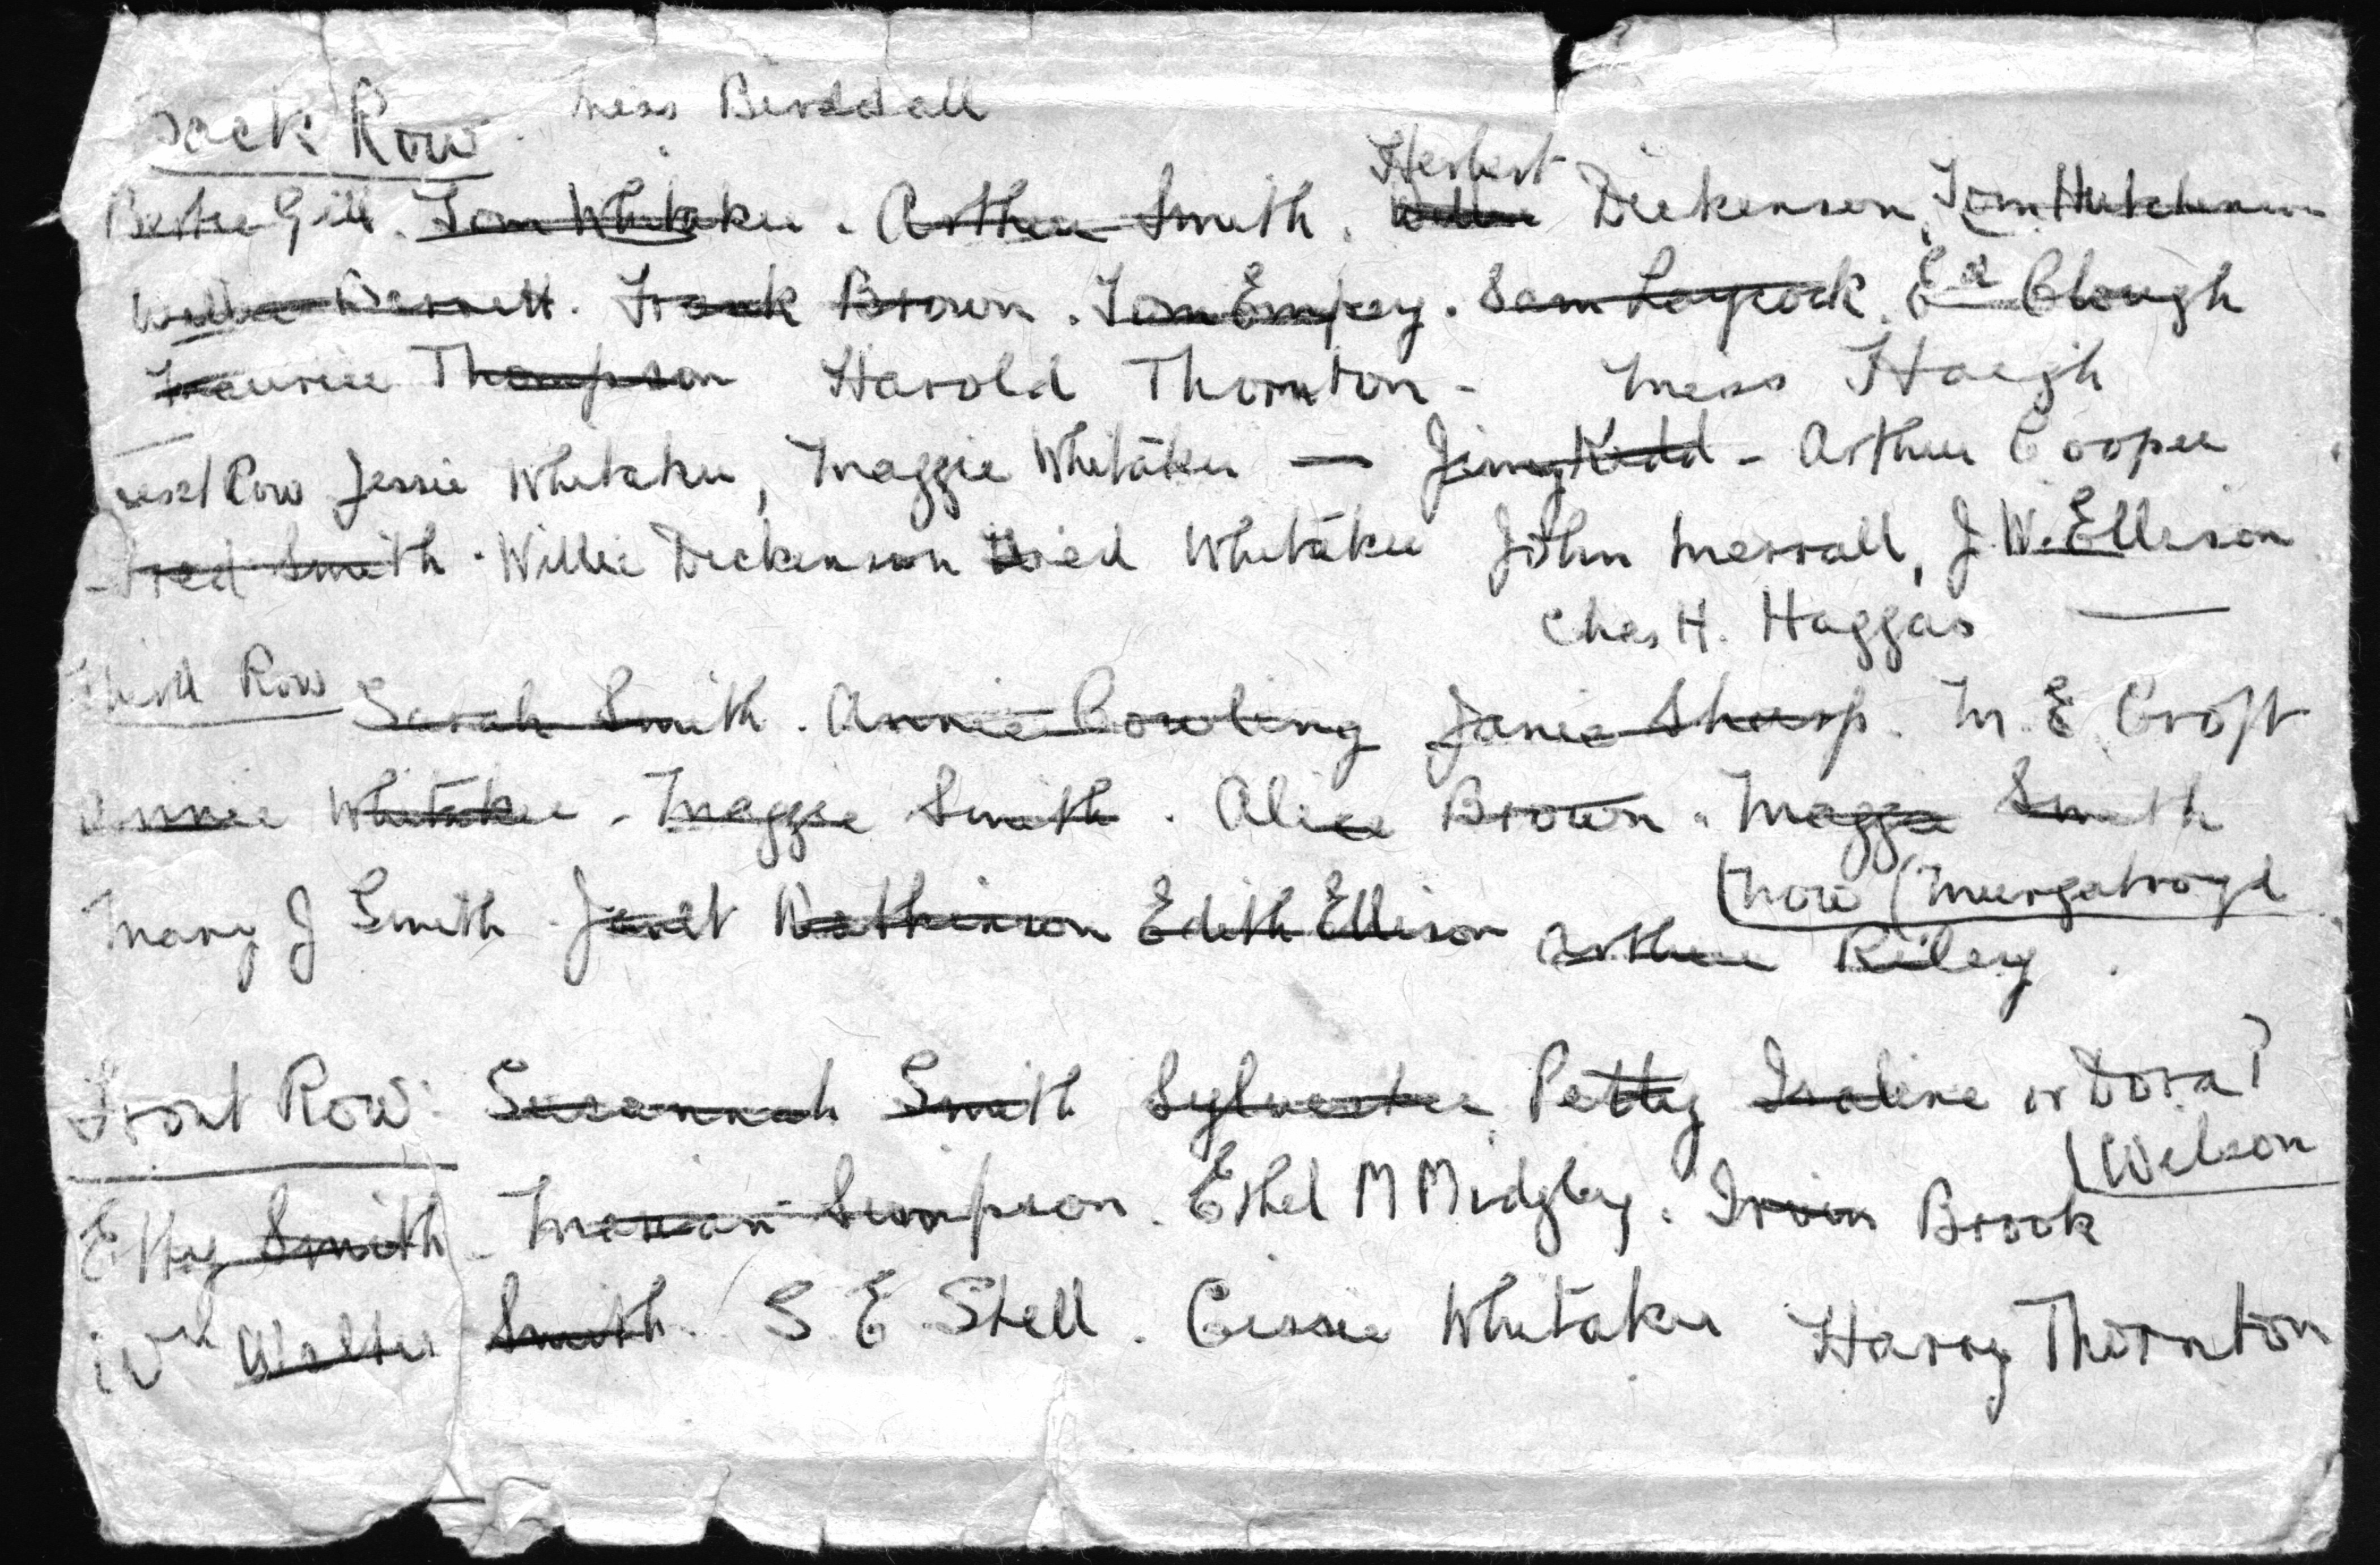 Back Row. Miss Birddall
Bertie Gill. Tom Whitaker. Arthur Smith. Herbert Willie Dickenson, Tom Hutchinson
Willie Barrett. Frank Brown. Tom Empsey. Sam Laycock. Ed Clough
Maurice Thompson Harold Thornton - Miss Haigh
next Row Jessie Whitaker, Maggie Whitaker — Jimy Kidd - Arthur Cooper
- Fred Smith. Willie Dickenson Fred Whitaker John Merrall, J. W. Ellison
Chas H. Haggas —
Third Row Sarah Smith. Annie Cowling Janie Sharp. M. E. Croft
Annie Whitaker. Maggie Smith. Alice Brown. Maggie Smith
(now (Murgatroyd
Mary J Smith Janet Watkinson Edith Ellison Arthur Riley.
Front Row: Susannah Smith Sylvester Petty Isaline or Dora?
(Wilson
Etty Smith - Marian Simpson. Ethel M Midgley. Irvin Brook
Wm Walter Smith. S. E. Stell. Cissie Whitaker Harry Thornton